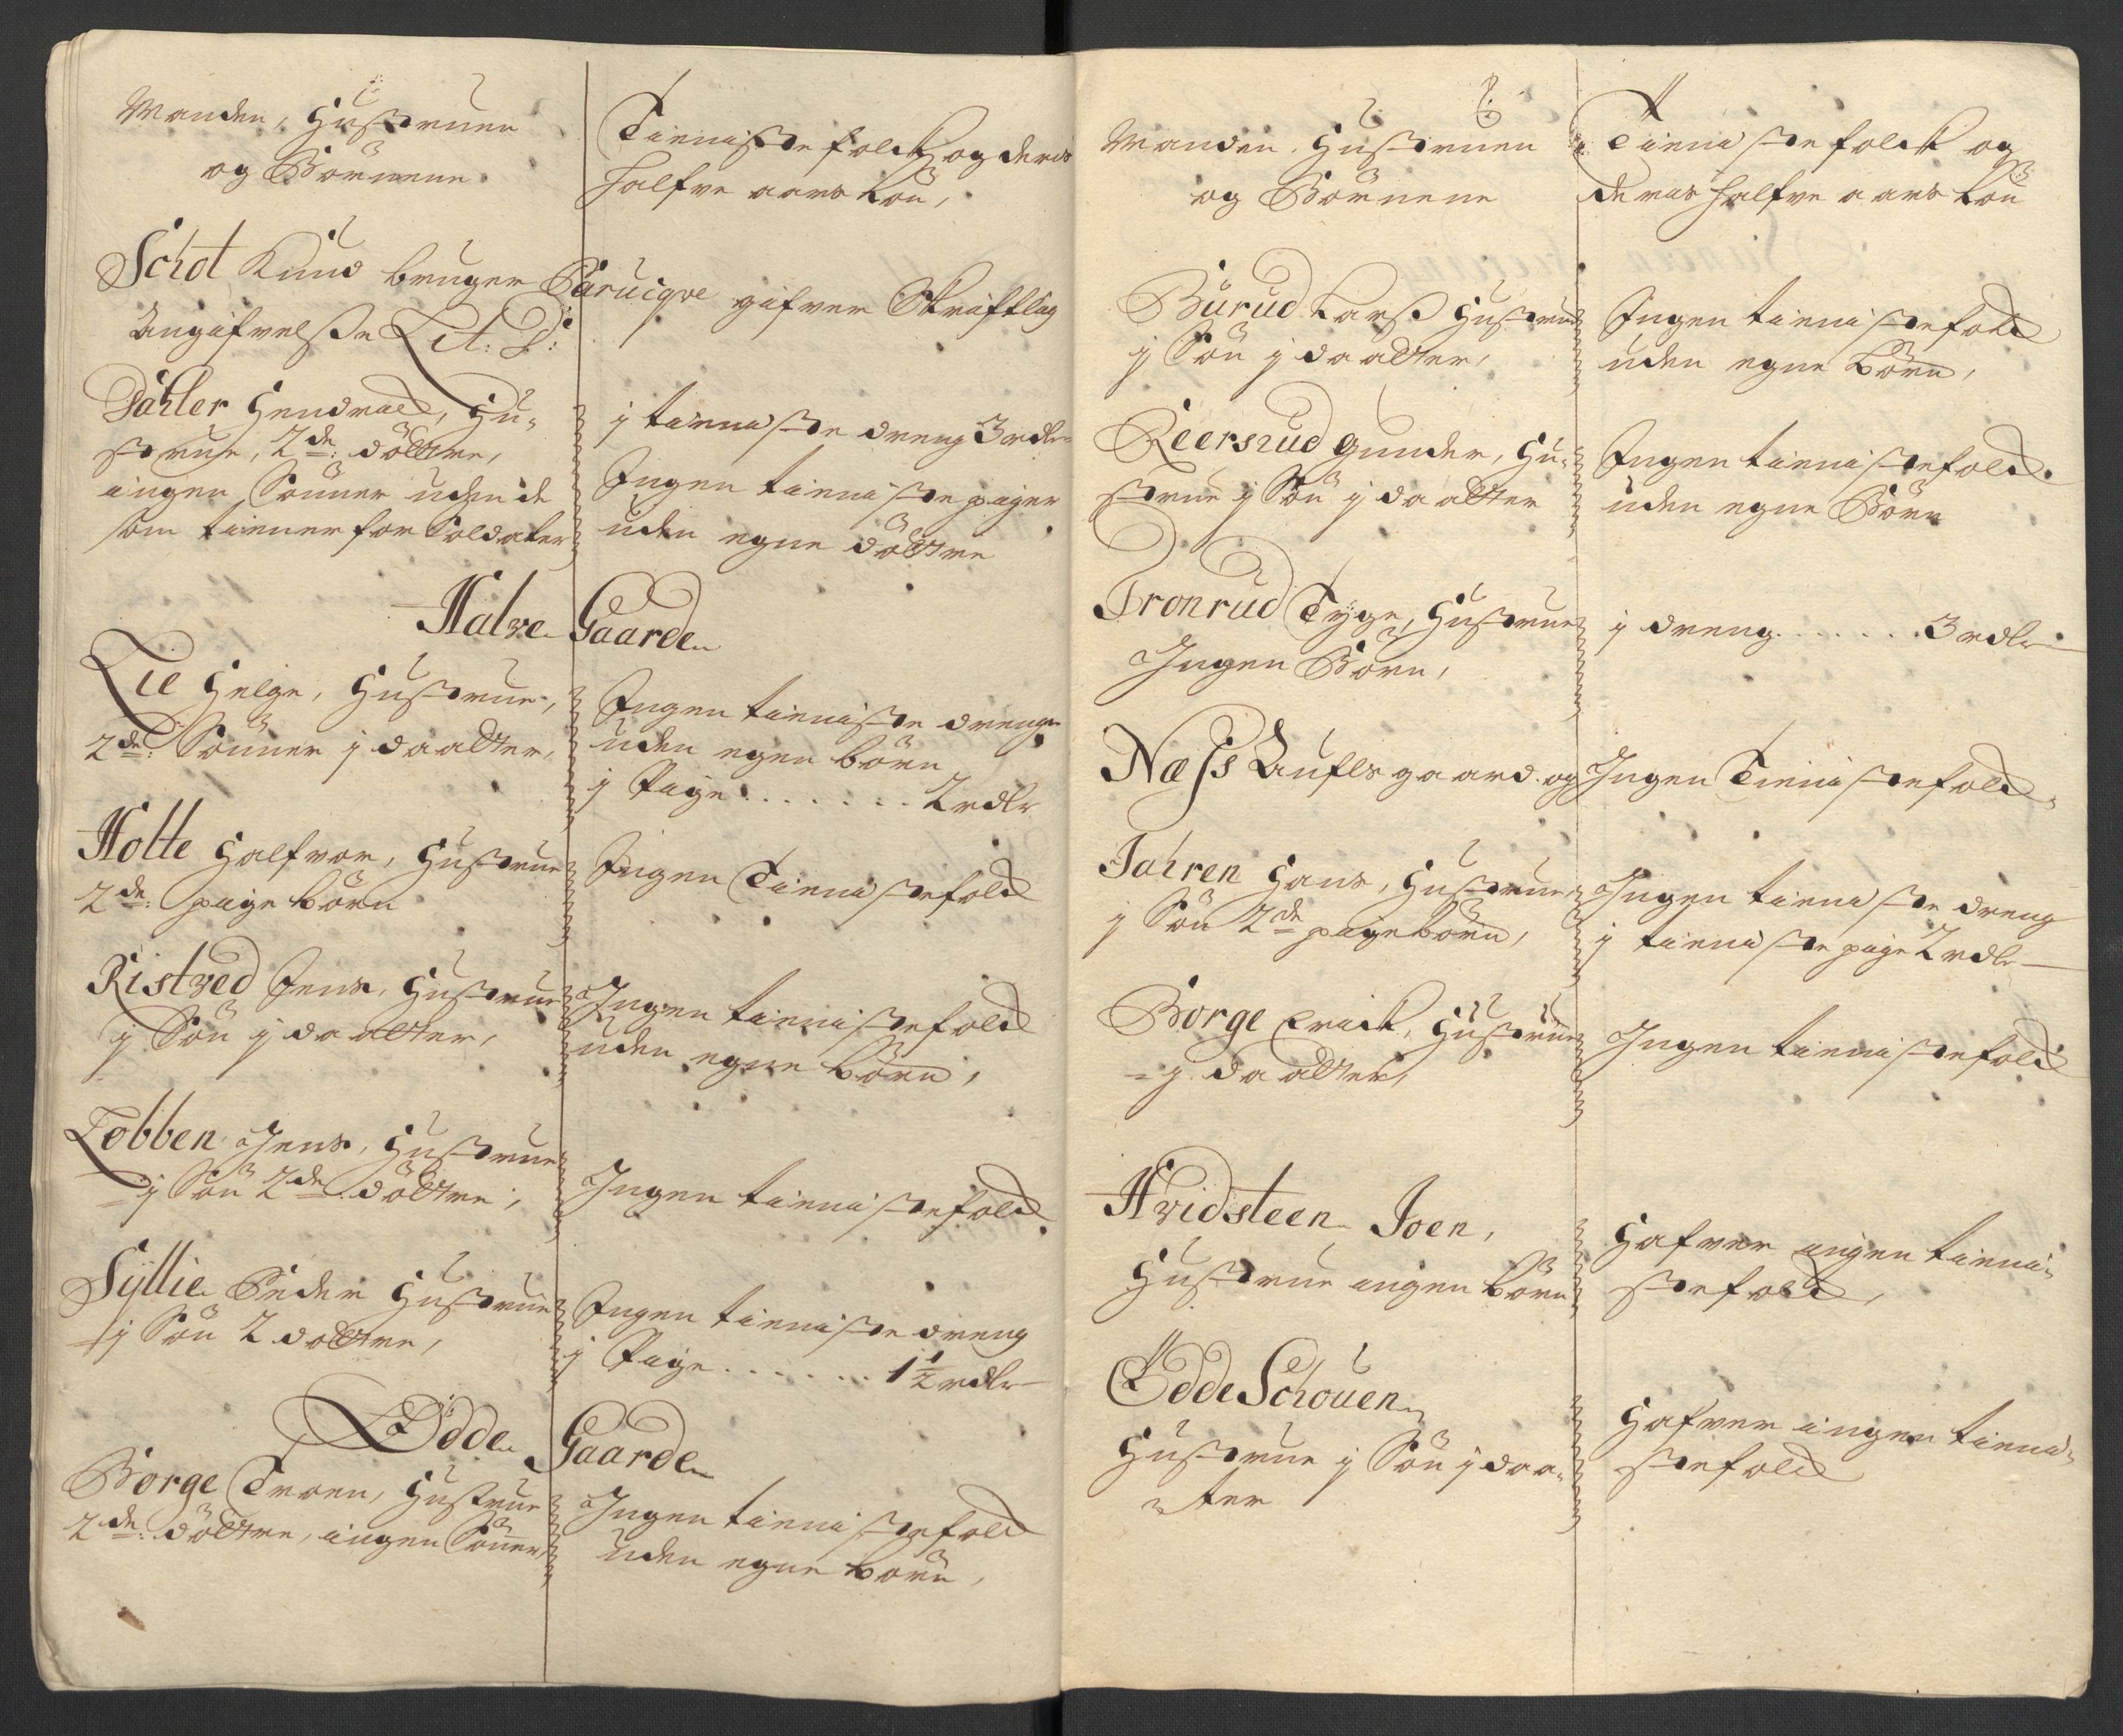 Manden, Hustruen
og Börnene
Tienniste folck og deris
halfve aars Lön,
Schot Knud bruger Parucqve gifver Skriftlig
Angifvelsse Lit: D:
Påhler Hendrich, Hu-
strue, 2de: döttre,
ingen Sönner uden de
som tiener for Soldater
j tienniste dreng 3 rdlr
Ingen tienniste piger
uden egne döttre
Halve Gaarde
Lie Helge, Hustrue,
2de: Sönner j daatter,
Ingen tienniste drenge
uden egen börn
j Pige . . . . . . . 2 rdlr
Holte Halfvor, Hustrue
2de: pige börn
Ingen Tienniste folck
Ristved Jens, Hustrue
j Sön j daatter,
Ingen tienniste folck
uden egne börn,
Lobben Jens, Hustrue
j Sön 2de döttre,
Ingen tienniste folck
Syllie Peder Hustrue
j Sön 2 döttre,
Ingen tienniste dreng
j Pige . . . . . . . 1½ rdlr
Ödde Gaarde
Borge Troen, Hustrue
2de: döttre, ingen Sönner
Ingen tienniste folck
uden egne börn,
Manden, Hustruen
og Börnene
Tienniste folck og
deris halfve aars Lön
Burud Larss Hustrue
j Sön j daatter,
Ingen tienniste folck
uden egne Börn,
Reersrud Gunder, Hu-
strue j Sön j daatter
Ingen tienniste folck
uden egne Börn
Tronrud Tyge, Hustrue
Ingen Börn,
j dreng . . . . . . . 3 rdlr
Næss Aufls gaard og
Ingen Tienniste folck
Jahren Hans, Hustrue
j Sön 2de pige börn,
Ingen tienniste dreng
j tienniste pige 2 rdlr
Borge Erick, Hustrue
j daatter,
Ingen tienniste folck
Hvidsteen Joen,
Hustrue ingen börn
Hafver ingen tienni-
ste folck,
Ödde Schouen
Hustrue j Sön j daa-
tter
Hafver ingen tienni-
ste folck